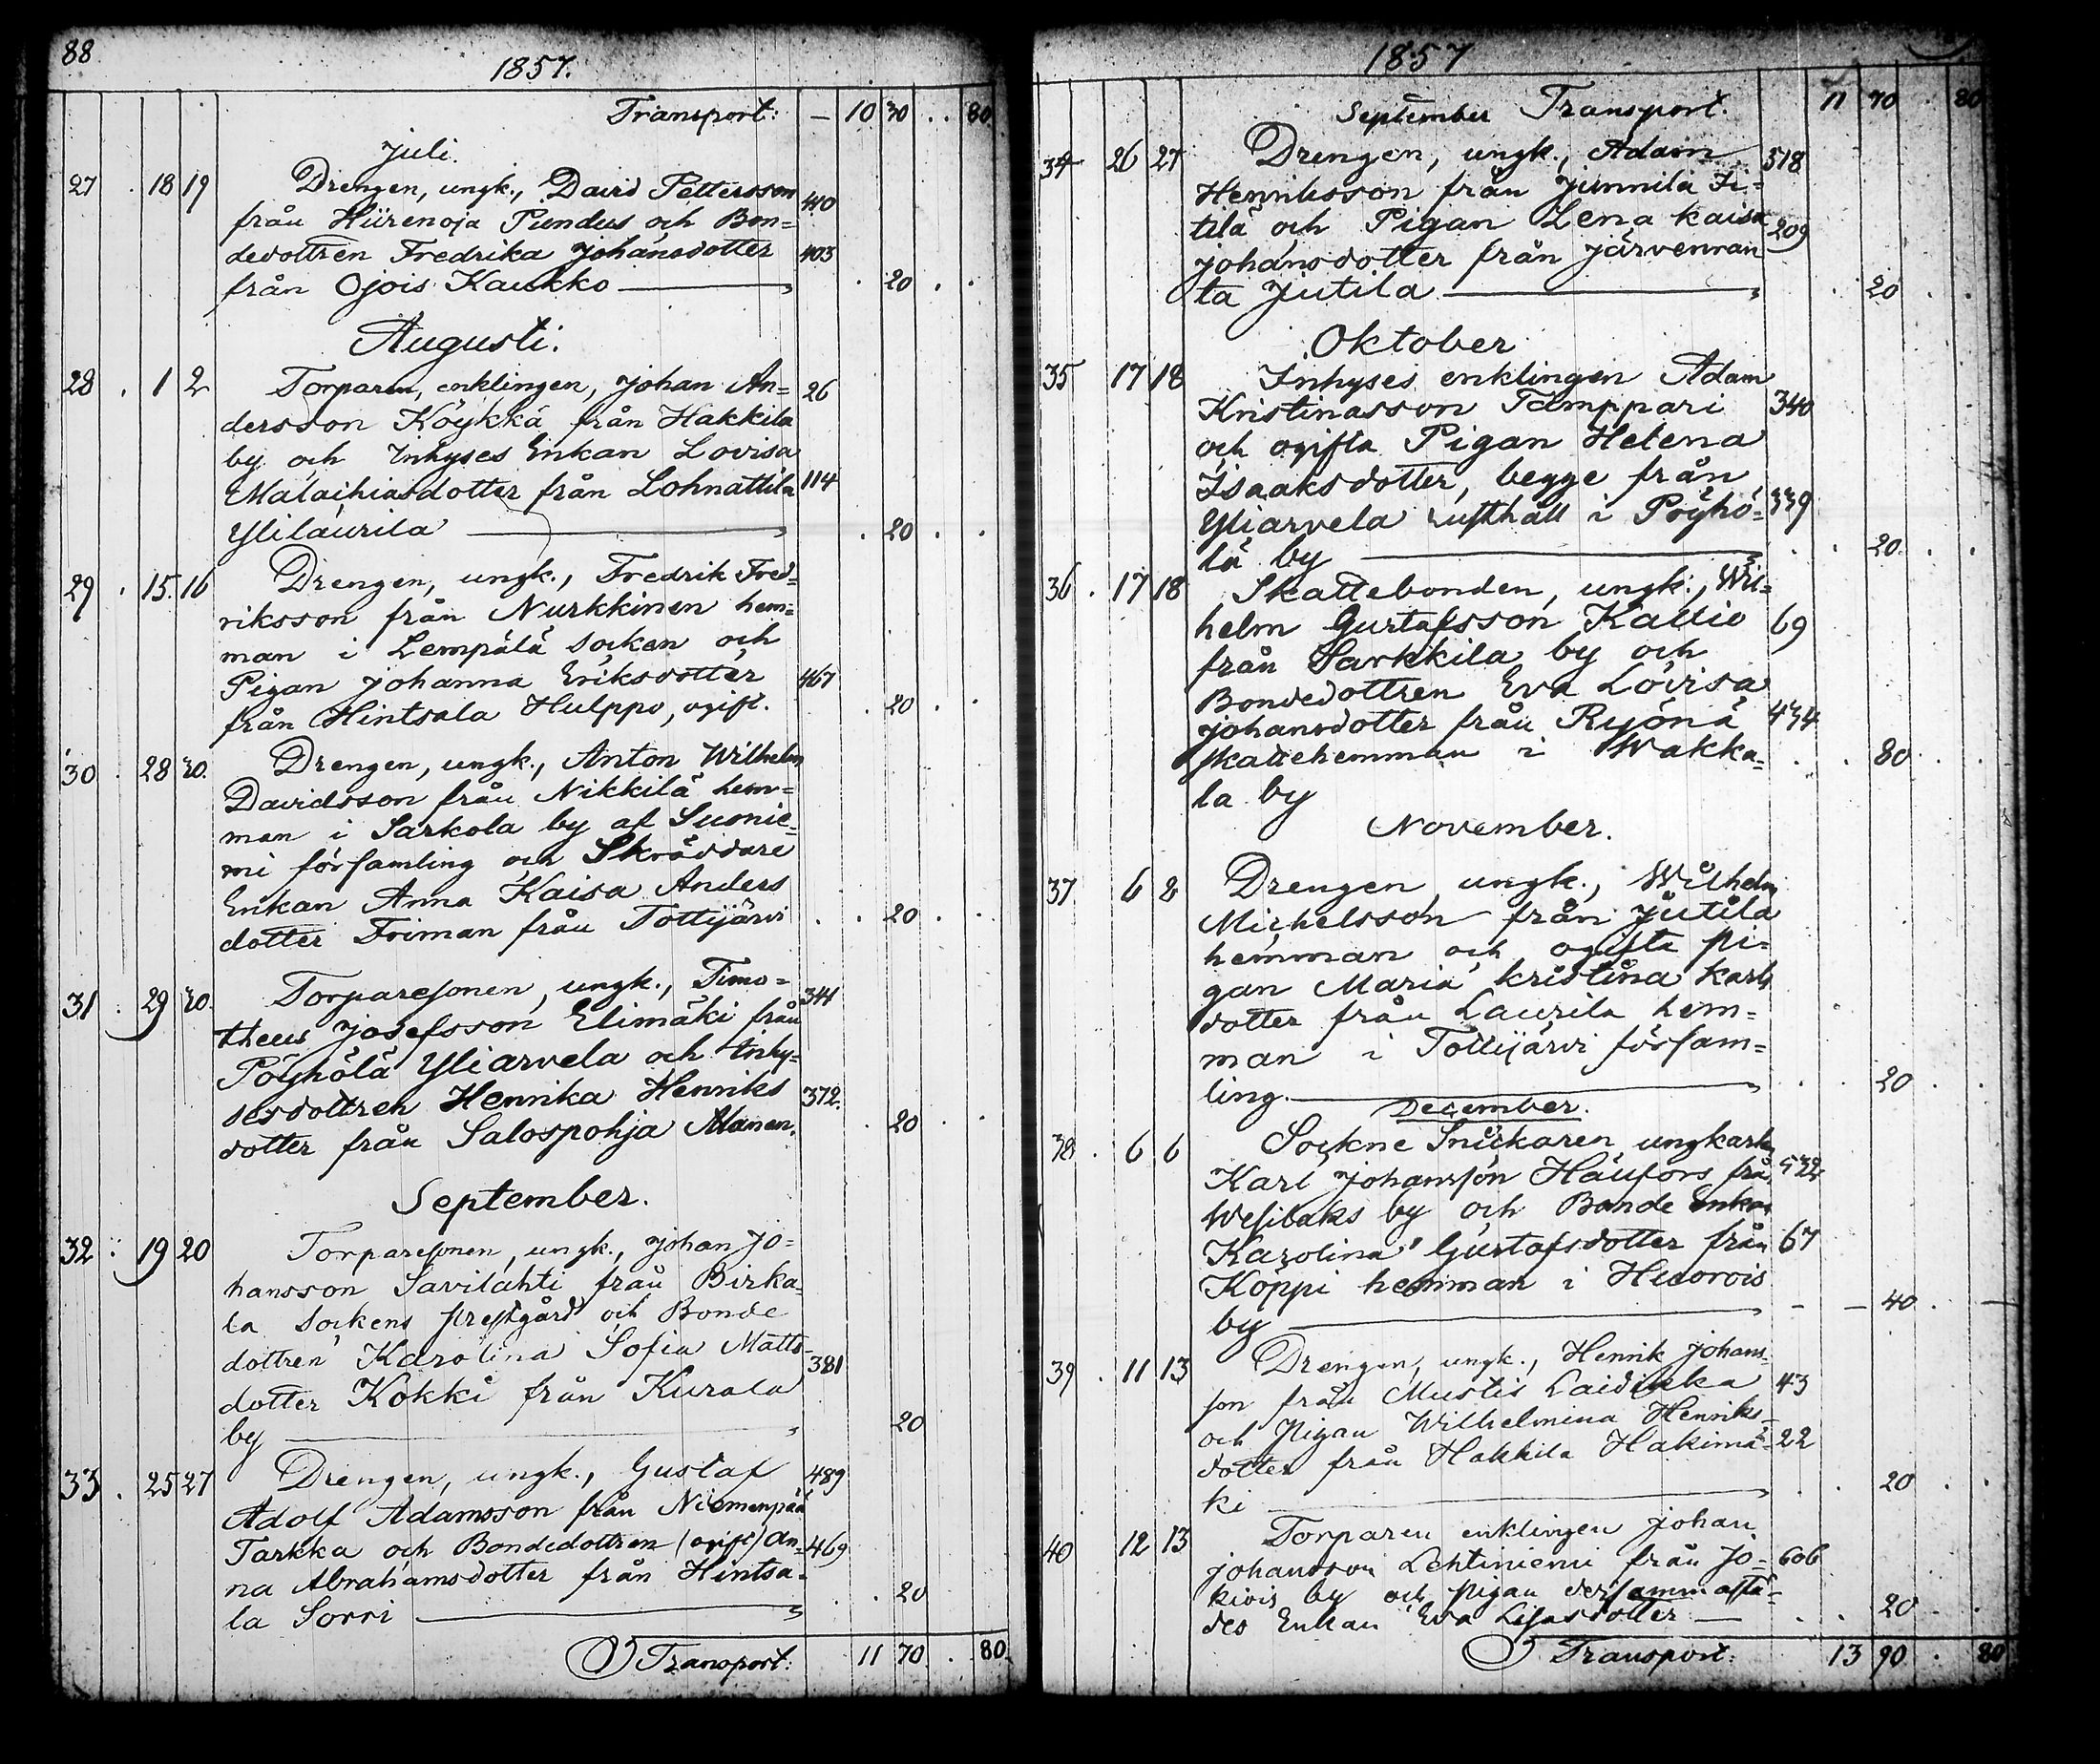 88
1857.
Transport: — 10 30 . . 80
Juli.
27 . 18 19 Drengen, ungk., David Pettersson
från Hiirenoja Penders och Bon= 410
dedottren Fredrika Johansdotter 403
från Ojois Kaukko — . 20 . .
Augusti.
28 . 1 2 Torparen, enklingen, Johan An= 26
dersson Köykkä från Hakkila
by och Inhyses Enkan Lovisa
Malachiasdotter från Lohnattila 114
Ylilaurila — . 20 . .
29 . 15. 16 Drengen, ungk., Fredrik Fred=
riksson från Nurkkinen hem=
man i Lempälä Socken och
Pigan Johanna Eriksdotter 467
från Hintsala Hulppo, ogift. . 20 . .
30 . 28 30. Drengen, ungk., Anton Wilhelm
Davidsson från Nikkilä hem=
man i Sarkola by af Suonie=
mi församling och Skräddare
Enkan Anna Kaisa Anders
dotter Friman från Tottijärvi . . 20 . .
31 . 29 30. Torparesonen, ungk., Timo= 341
theus Josefsson Elimäki från
Pöyhölä Yliarvela och Inhy=
sesdottren Henrika Henriks 372.
dotter från Salospohja Alanen. . 20 . .
September.
32 . 19 20 Torparesonen, ungk., Johan Jo=
hansson Savilahti från Birka=
la Sockens prestgård och Bonde
dottren Karolina Sofia Matts=
dotter Kokki från Kurala 381
by — 20
33 . 25 27 Drengen, ungk., Gustaf 489
Adolf Adamsson från Niemenpää
Tarkka och Bondedottren (ogift) An= 469
na Abrahamsdotter från Hintsa=
la Sorri — . . 20
Transport: 11 70 . . 80.
1857
September Transport. 11 70 . 80
34 26 27 Drengen, ungk., Adam 318
Henriksson från Junnila Ii=
tilä och Pigan Lena Kaisa 209
Johansdotter från Järvenran
ta Jutila — . . 20 . .
Oktober
35 17 18 Inhyses enklingen Adam
Kristinasson Tamppari 340
och ogifta Pigan Helena
Isaaksdotter, begge från
Yliarvela rusthåll i Pöyhö= 339
lä by — . . 20 . .
36 . 17 18 Skattebonden, ungk., Wil=
helm Gustafsson Kallio 69
från Sarkkila by och
Bondedottren Eva Lovisa
Johansdotter från Ryönä 434
skattehemman i Wakka= . . 80 . .
la by
November.
37 6 8 Drengen, ungk., Wilhelm
Michelsson från Jutila
hemman och ogifta Pi=
gan Maria Kristina Karls
dotter från Laurila hem=
man i Tottijärvi försam=
ling. — . . 20 . .
December.
38 . 6 6 Sockne Snickaren, ungkarlen
Karl Johansson Häufors från 532
Wesilaks by och Bonde Enkan
Karolina Gustafsdotter från 67
Köppi hemman i Huorois
by — - — 40 . —
39 . 11 13 Drengen, ungk., Henrik Johans=
son från Mustis Laidinka 43
och Pigan Wilhelmina Henriks=
dotter från Hakkila Hakimä= 22
ki — . . 20 . .
40 12 13 Torparen enklingen Johan
Johansson Lehtiniemi från Jo= 606
kiois by och pigan dersammastä=
des Enkan Eva Lisasdotter — . . 20 . .
Transport: 13 90 . 80